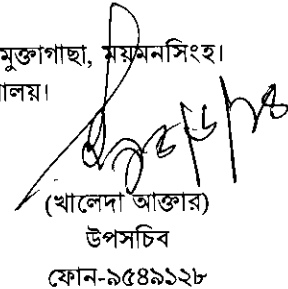 মুক্তাগাছা, ময়মনসিংহ।
ালয়।
(খালেদা আক্তার)
উপসচিব
ফোন-৯৫৪৯১২৮